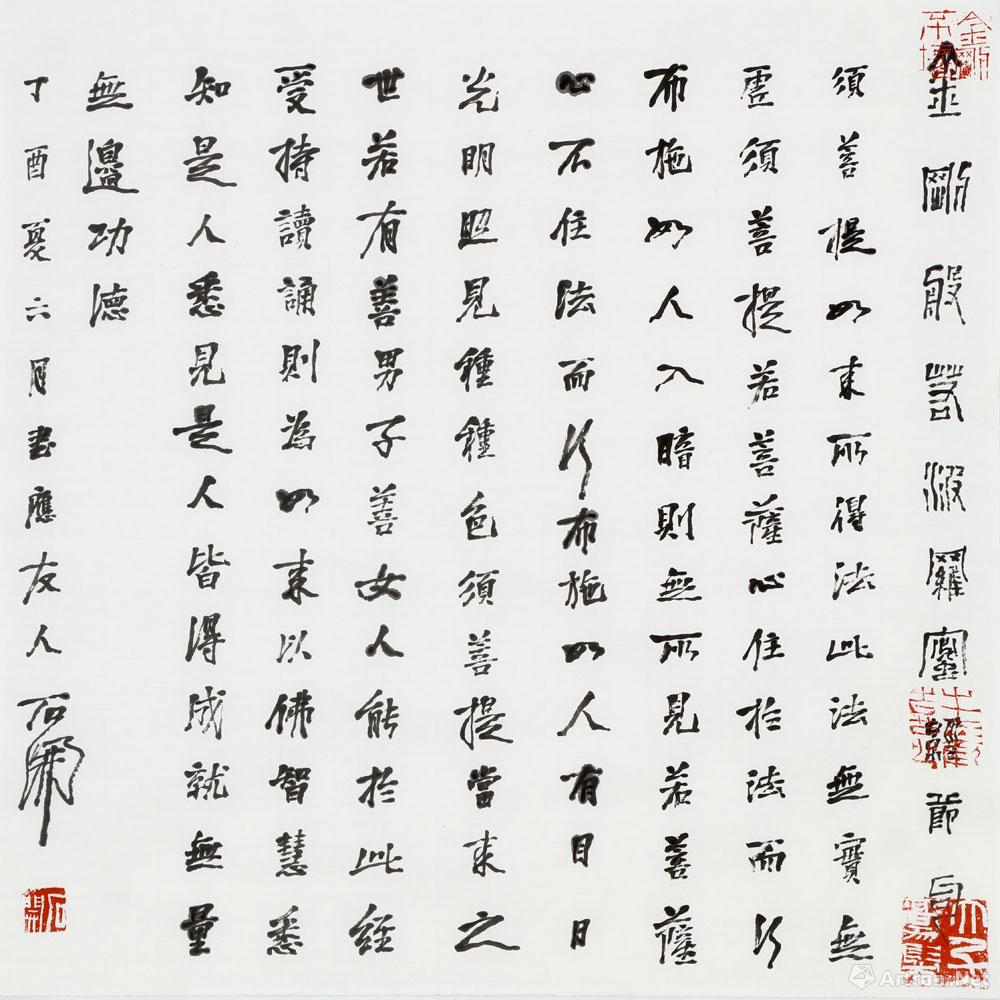 金剛般若波羅蜜經節
須菩提如来所得法此法無實無
虛須菩提若菩薩心住於法而行
布施如人入暗則無所見若菩薩
心不住法而行布施如人有目日
光明照見種種色須菩提當来之
世若有善男子善女人能於此經
受持讀誦則為如来以佛智慧悉
知是人悉見是人皆得成就無量
無邊功德
丁酉夏六月書應友人石開
石開
Artron.Net